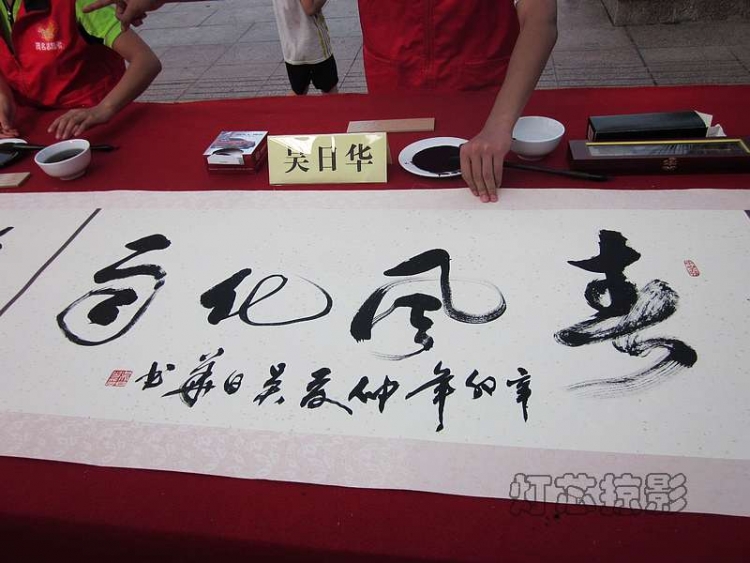 吴日华
春风化雨
辛卯年仲夏吴日華书
灯芯掠影